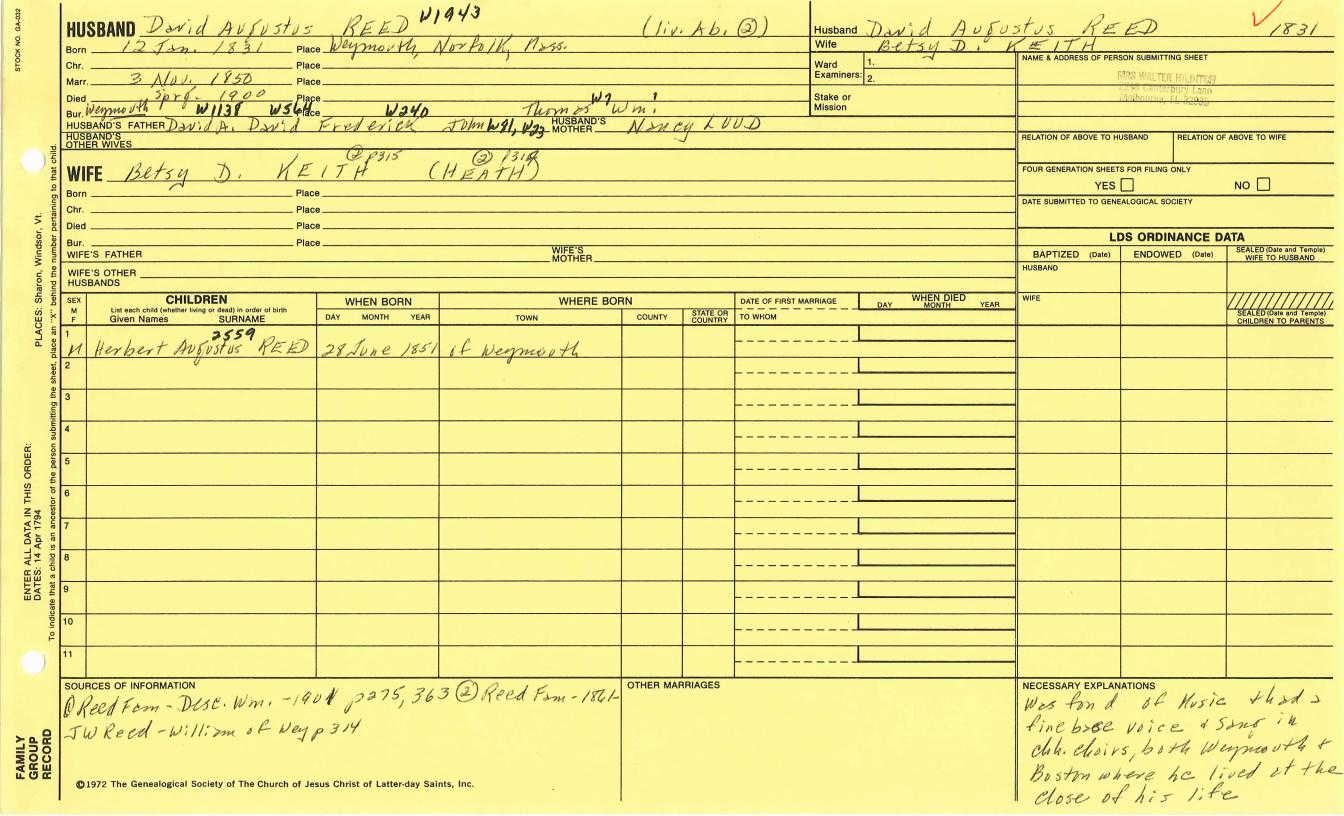 STOCK NO. GA-032
HUSBAND David Augustus REED W1943 (liv. Ab. ②)
Born 12 Jan. 1831 Place Weymouth, Norfolk, Mass.
Chr. Place
Marr. 3 Nov. 1850 Place
Died Spr. 1900 Place
Bur. Weymouth W1138 W564 Place W240 Thomas W7 Wm.1
HUSBAND'S FATHER David A. David Frederick John W91, W23 HUSBAND'S MOTHER Nancy LOUD
HUSBAND'S OTHER WIVES
WIFE Betsy D. KEITH ① p315 (HEATH) ② p314
Born Place
Chr. Place
Died Place
Bur. Place
WIFE'S FATHER WIFE'S MOTHER
WIFE'S OTHER HUSBANDS
Husband David Augustus REED 1831
Wife Betsy D. KEITH
Ward Examiners: 1. 2.
Stake or Mission
NAME & ADDRESS OF PERSON SUBMITTING SHEET
MRS WALTER
Canterbury Lane
RELATION OF ABOVE TO HUSBAND RELATION OF ABOVE TO WIFE
FOUR GENERATION SHEETS FOR FILING ONLY
YES NO
DATE SUBMITTED TO GENEALOGICAL SOCIETY
LDS ORDINANCE DATA
BAPTIZED (Date) ENDOWED (Date) SEALED (Date and Temple) WIFE TO HUSBAND
HUSBAND
WIFE
SEALED (Date and Temple) CHILDREN TO PARENTS
SEX M F CHILDREN List each child (whether living or dead) in order of birth Given Names SURNAME WHEN BORN DAY MONTH YEAR WHERE BORN TOWN COUNTY STATE OR COUNTRY DATE OF FIRST MARRIAGE TO WHOM WHEN DIED DAY MONTH YEAR
1 M Herbert Augustus REED 2559 28 June 1851 of Weymouth
2
3
4
5
6
7
8
9
10
11
SOURCES OF INFORMATION
① Reed Fam - Desc. Wm. - 1901 p275, 363 ② Reed Fam - 1861 -
JW Reed - William of Wey p 314
©1972 The Genealogical Society of The Church of Jesus Christ of Latter-day Saints, Inc.
OTHER MARRIAGES
NECESSARY EXPLANATIONS
Was fond of Music & had a
fine base voice & Sang in
chh. choirs, both Weymouth &
Boston where he lived at the
close of his life
ENTER ALL DATA IN THIS ORDER:
DATES: 14 Apr 1794 PLACES: Sharon, Windsor, Vt.
To indicate that a child is an ancestor of the person submitting the sheet, place an "X" behind the number pertaining to that child.
FAMILY GROUP RECORD